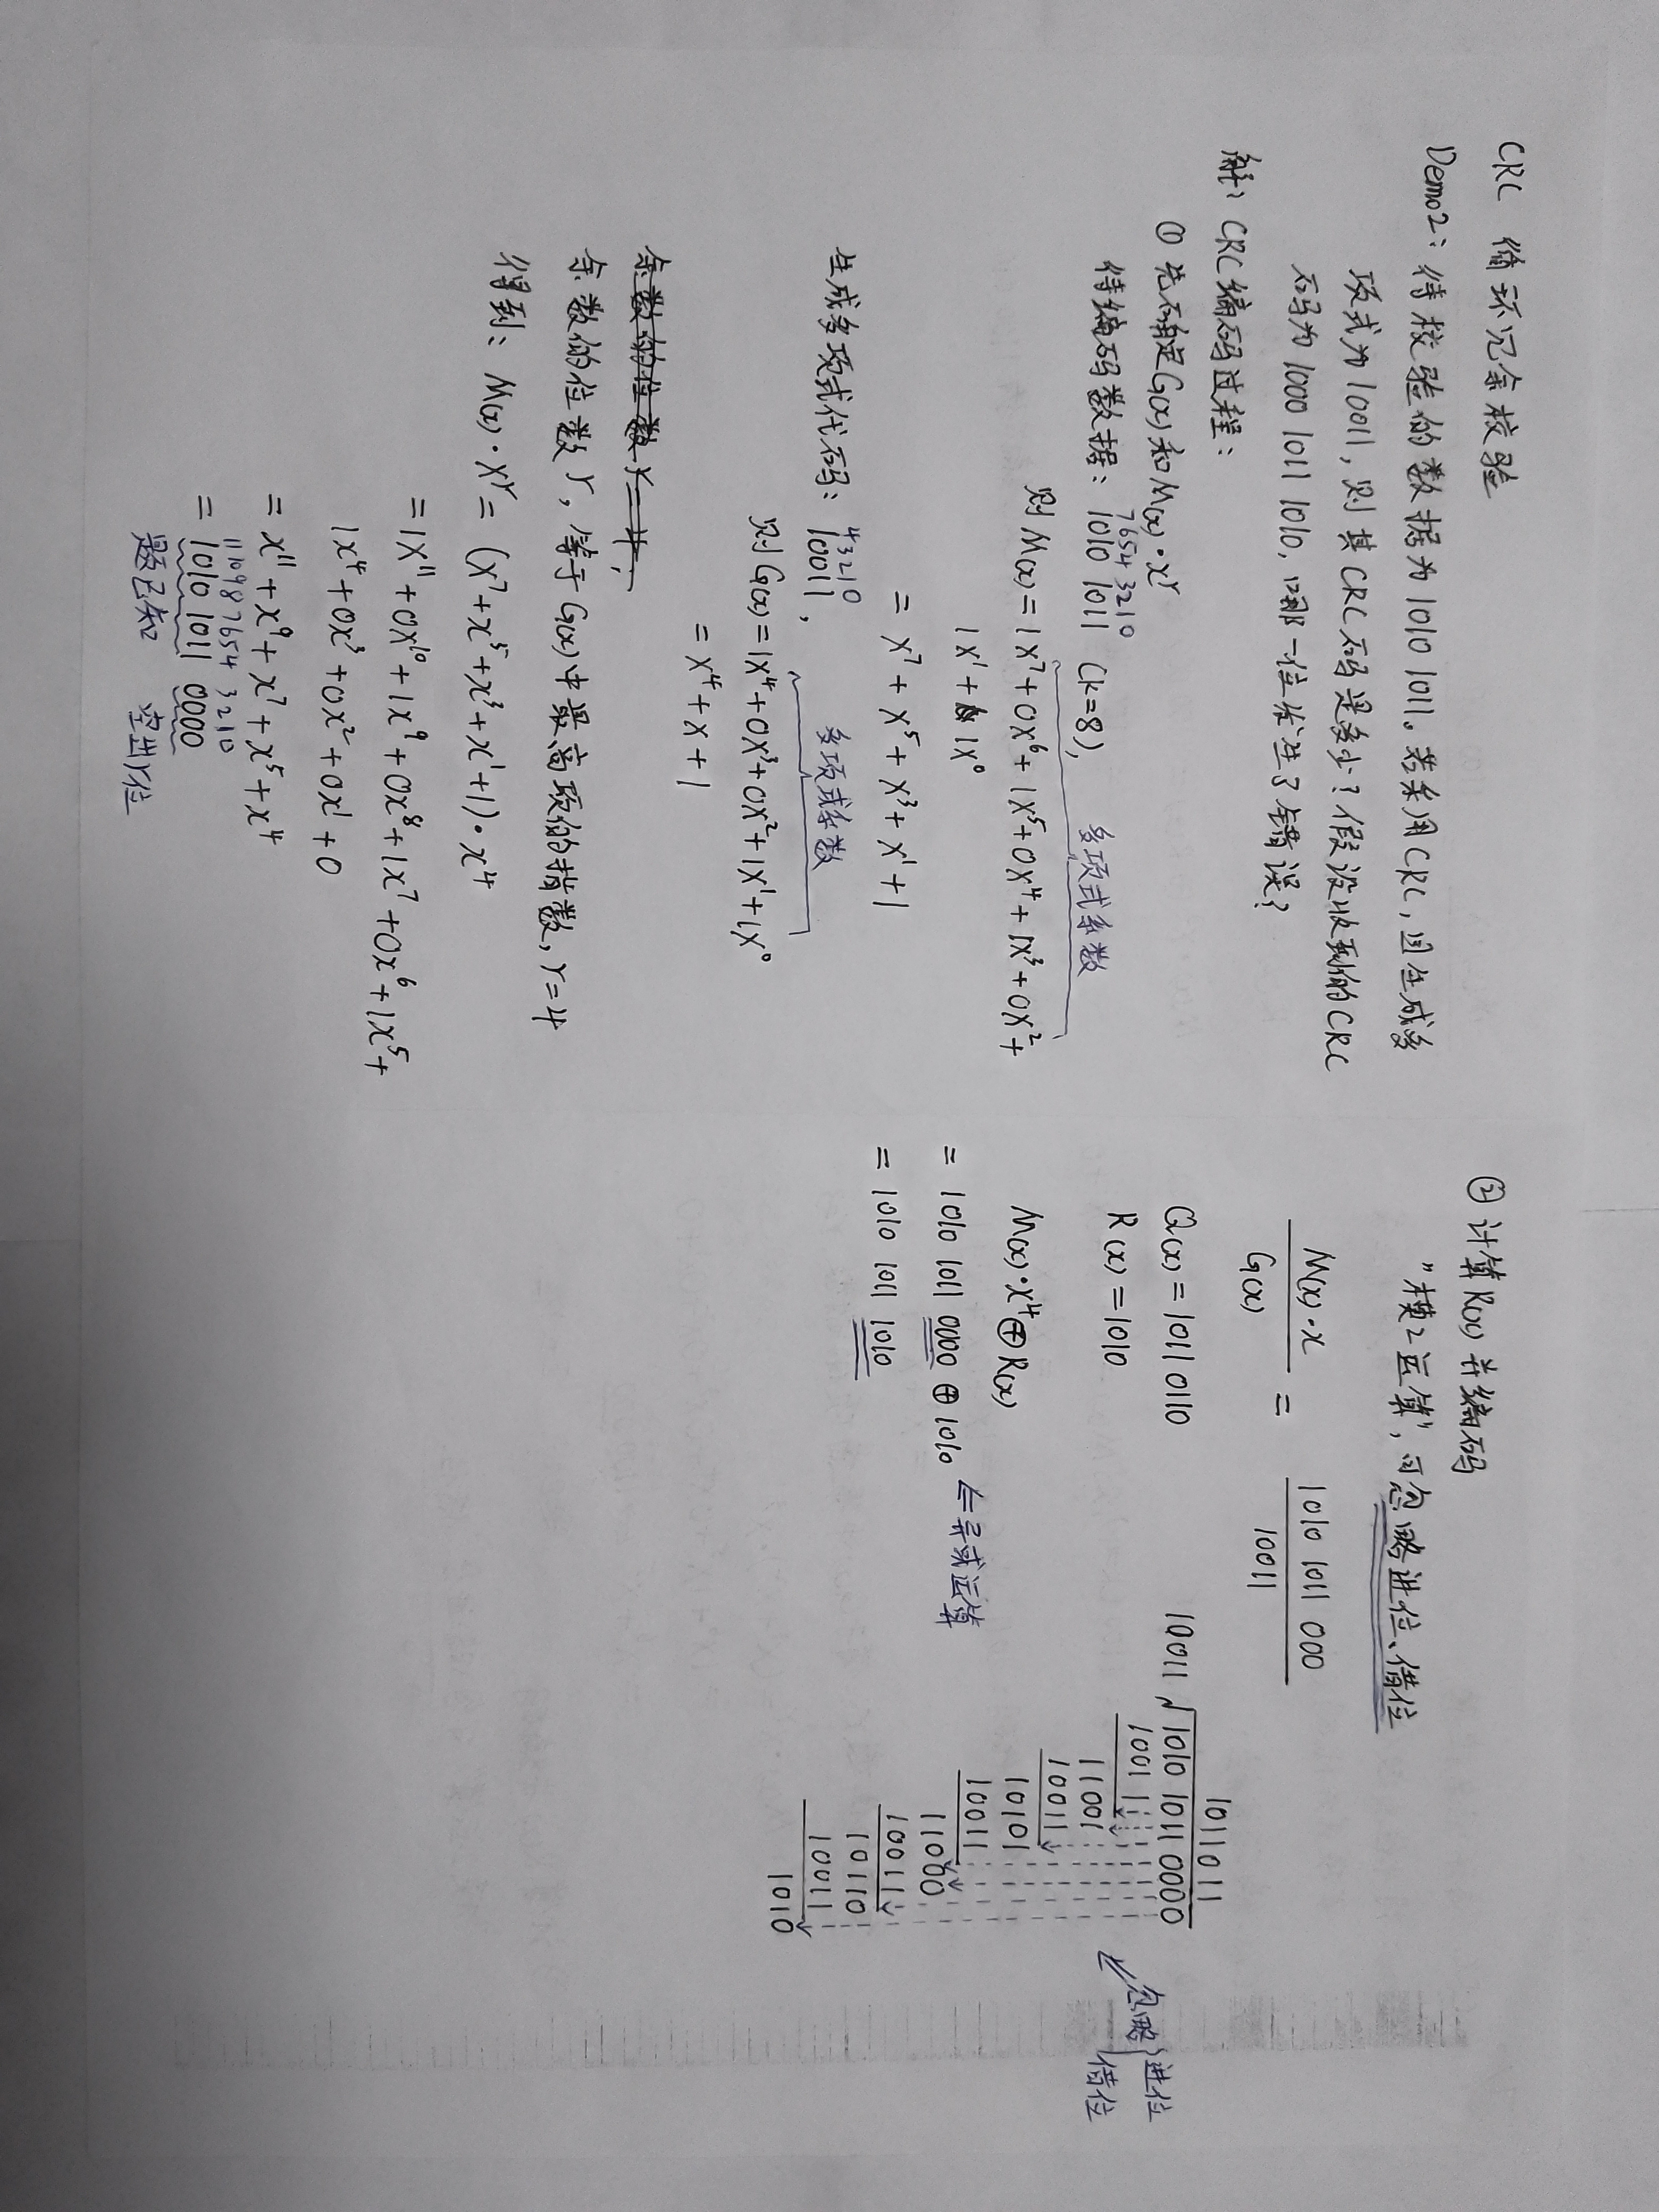 CRC 循环冗余校验
Demo2: 待校验的数据为1010 1011。若采用CRC, 且生成多
项式为10011, 则其CRC码是多少? 假设收到的CRC
码为1000 1011 1010, 哪一位发生了错误?
解: CRC编码过程:
① 先确定G(x)和M(x)·x^r
7654 3210
待编码数据: 1010 1011 (k=8), 多项式系数
则M(x) = 1x^7+0x^6+1x^5+0x^4+1x^3+0x^2+
1x^1+1x^0
= x^7+x^5+x^3+x^1+1
43210
生成多项式代码: 10011, 多项式系数
则G(x)=1x^4+0x^3+0x^2+1x^1+1x^0
= x^4+x+1
余数的位数 r=4,
余数的位数r, 等于G(x)中最高项的指数, r=4
得到: M(x)·x^r = (x^7+x^5+x^3+x^1+1)·x^4
=1x^11+0x^10+1x^9+0x^8+1x^7+0x^6+1x^5+
1x^4+0x^3+0x^2+0x^1+0
= x^11+x^9+x^7+x^5+x^4
11 10 9 8 7654 3210
= 1010 1011 0000
题已知 空出r位
② 计算R(x)并编码
"模2运算", 可忽略进位、借位
M(x)·x
G(x)
=
1010 1011 000
10011
Q(x) = 1011 0110
R(x) = 1010
M(x)·x^4⊕R(x)
= 1010 1011 0000 ⊕ 1010 ⇐异或运算
= 1010 1011 1010
1011011
10011 √1010 1011 0000
10011
11001
10011
10101
10011
11000
10011
10110
10011
1010
忽略{进位
借位